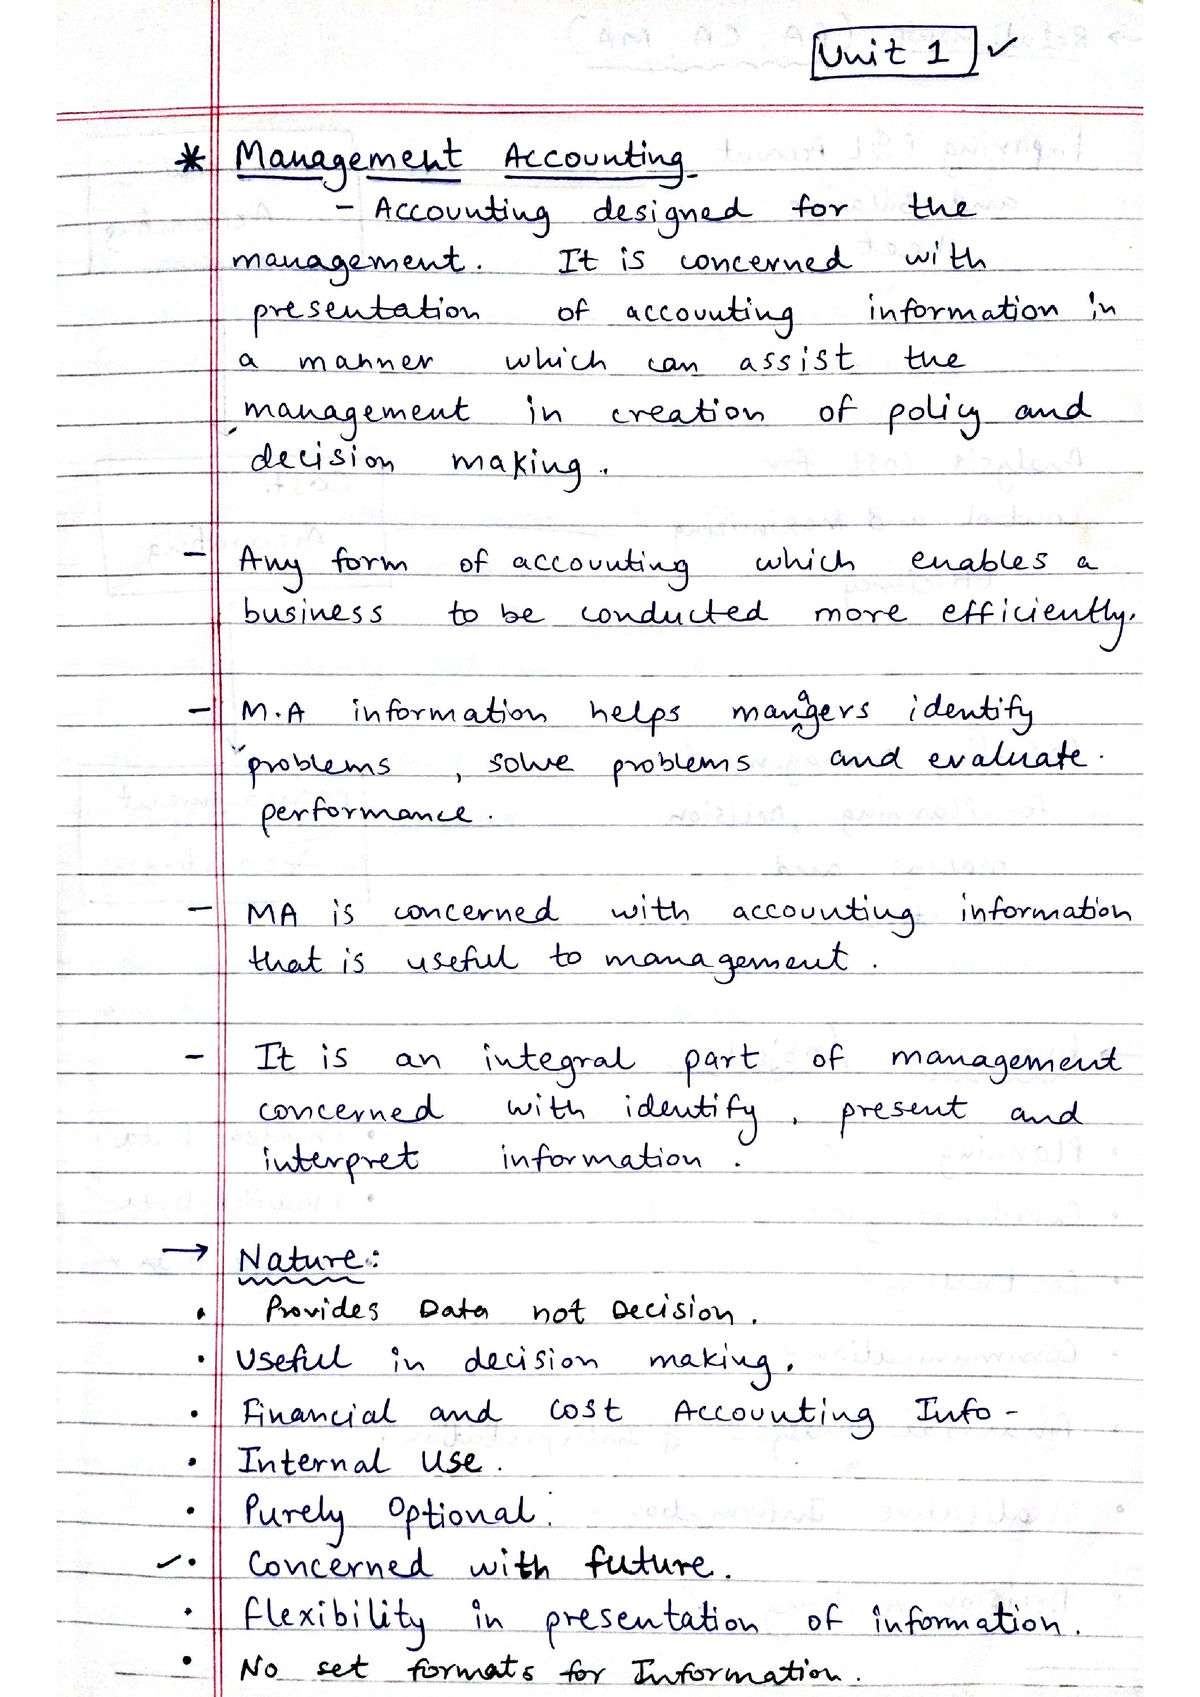 Unit 1
* Management Accounting
- Accounting designed for the
management. It is concerned with
presentation of accounting information in
a manner which can assist the
management in creation of policy and
decision making.
- Any form of accounting which enables a
business to be conducted more efficiently.
- M.A information helps managers identify
problems, solve problems and evaluate
performance.
- MA is concerned with accounting information
that is useful to management.
- It is an integral part of management
concerned with identify, present and
interpret information.
→ Nature:
• Provides Data not Decision.
• Useful in decision making.
• Financial and cost Accounting Info-
• Internal Use.
• Purely Optional.
• Concerned with future.
• flexibility in presentation of information.
• No set formats for Information.